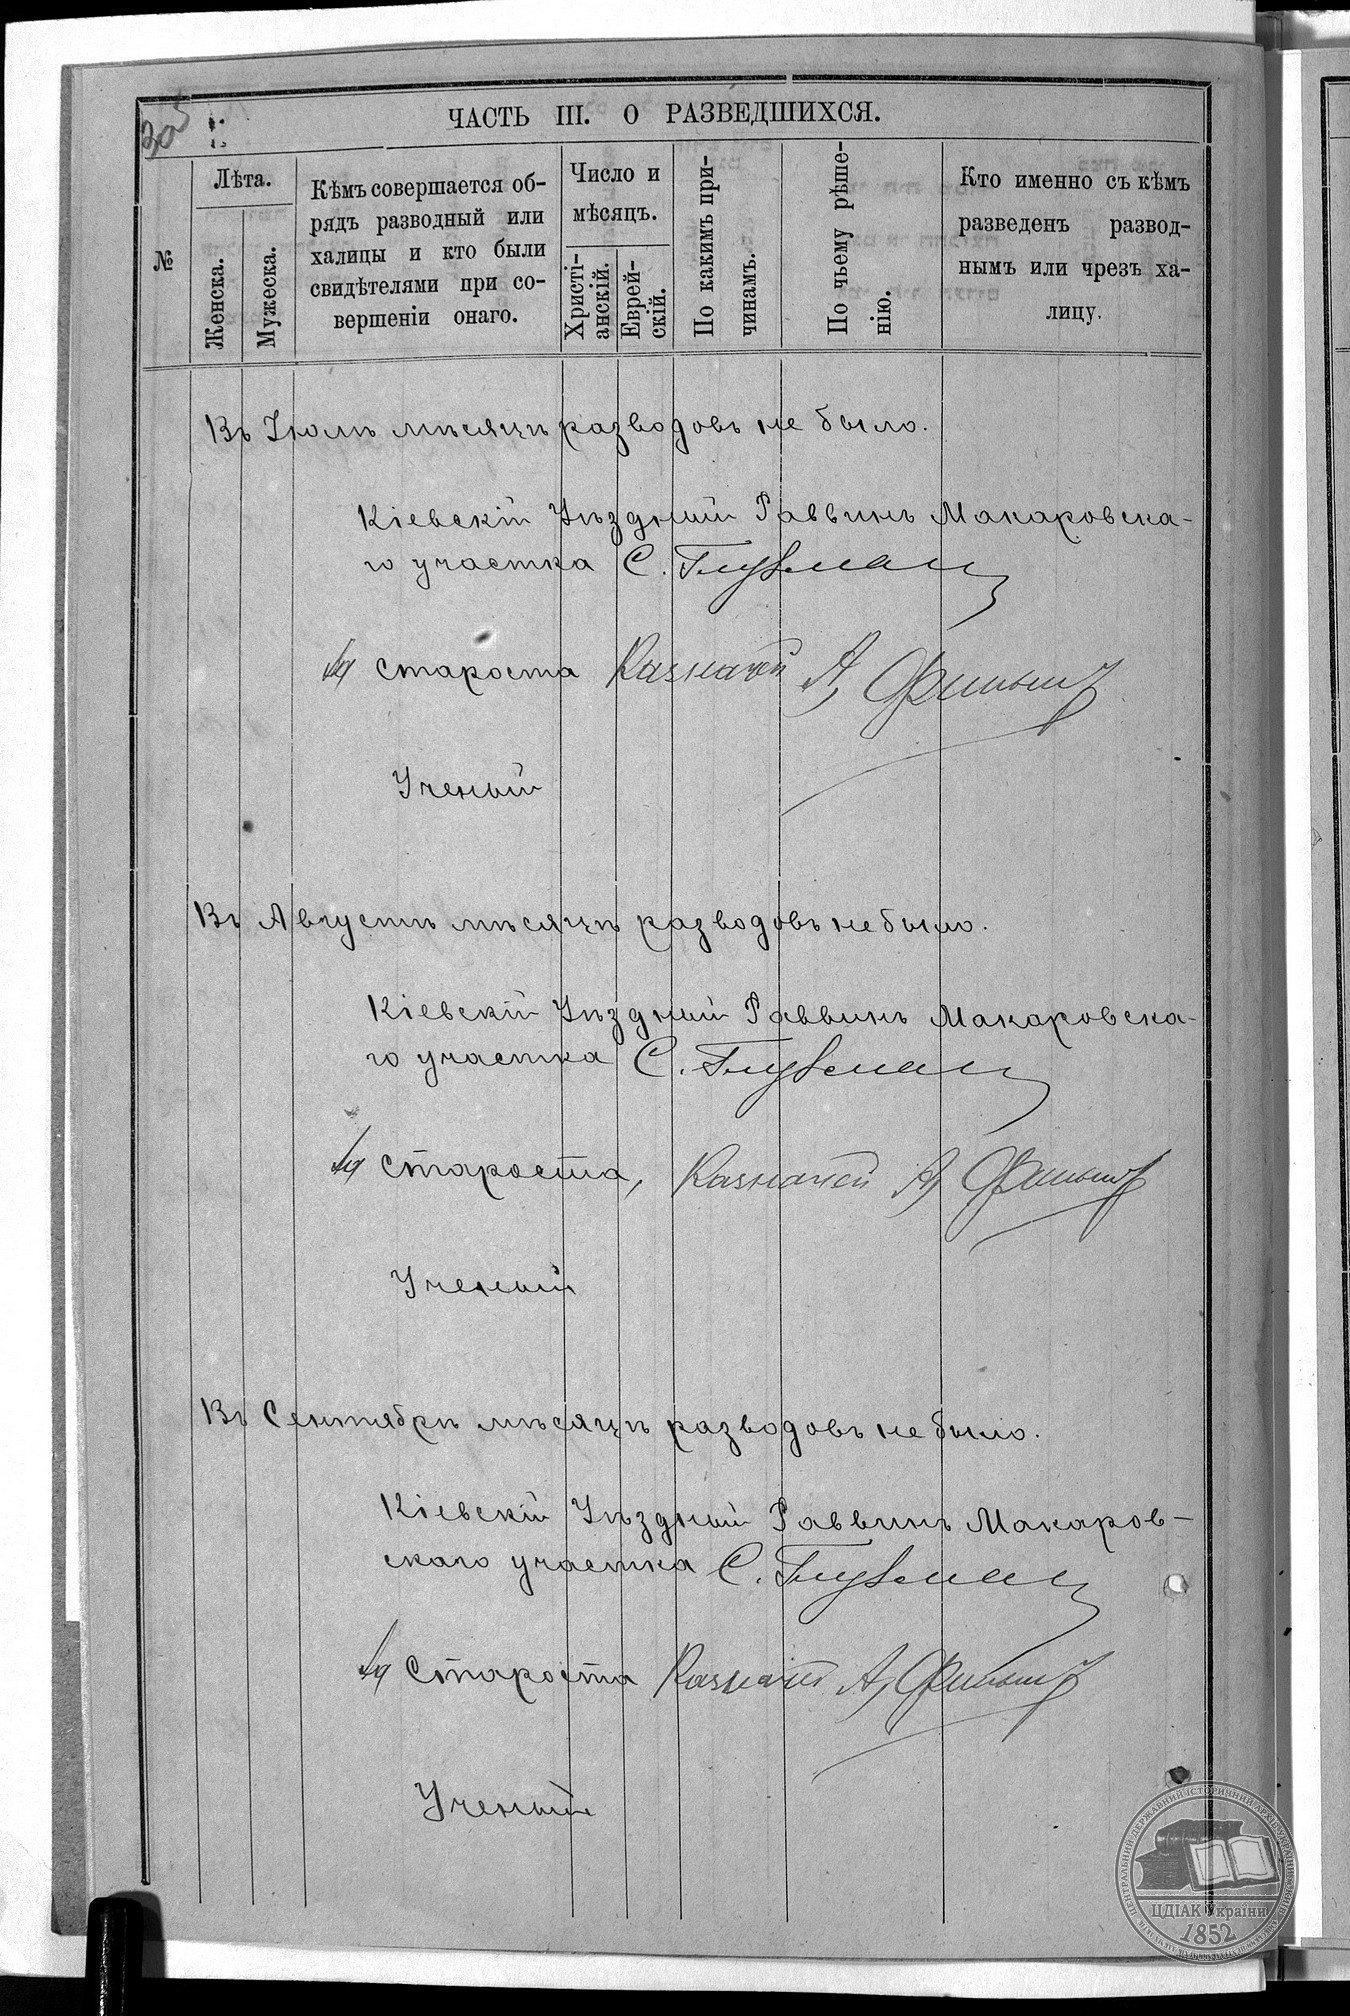 305
ЧАСТЬ III. О РАЗВЕДШИХСЯ.
№
Лѣта.
Женска.
Мужеска.
Кѣмъ совершается об-
рядъ разводный или
халицы и кто были
свидѣтелями при со-
вершеніи онаго.
Число и
мѣсяцъ.
Христі-
анскій.
Еврей-
скій.
По какимъ при-
чинамъ.
По чьему рѣше-
нію.
Кто именно съ кѣмъ
разведенъ развод-
нымъ или чрезъ ха-
лицу.
Въ Іюлѣ мѣсяцѣ разводовъ не было.
Кіевскій Уѣздный Раввинъ Макаровска-
го участка С. Глузман
Староста Казначей А,
Ученый
Въ Августѣ мѣсяцѣ разводовъ не было.
Кіевскій Уѣздный Раввинъ Макаровска-
го участка С. Глузман
Староста, Казначей А,
Ученый
Въ Сентябрѣ мѣсяцѣ разводовъ не было.
Кіевскій Уѣздный Раввинъ Макаров-
скаго участка С. Глузман
Староста Казначей А,
Ученый
ЦДІАК України
1852